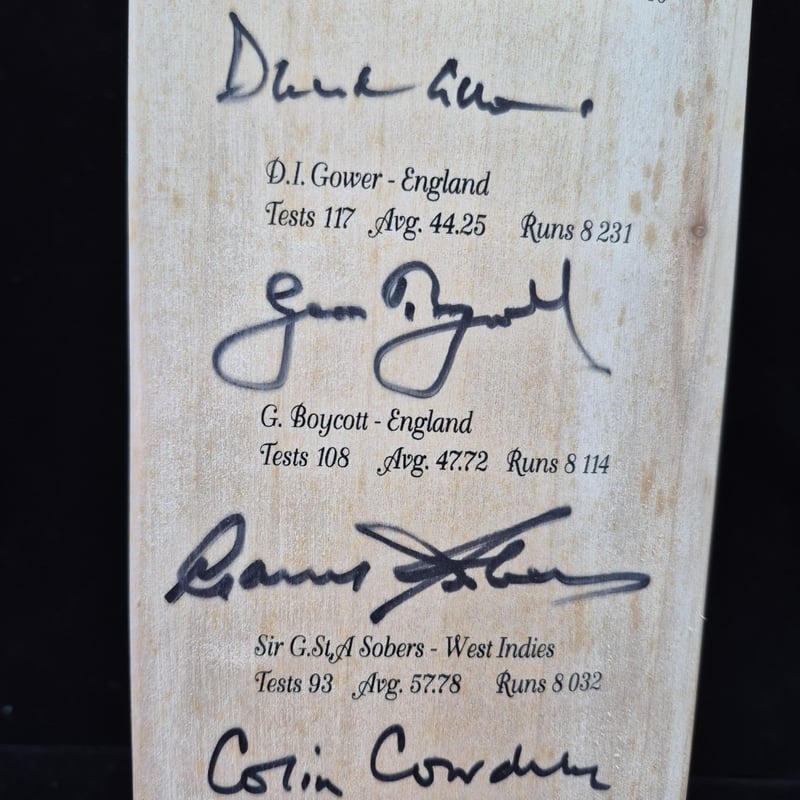 D.I. Gower - England
Tests 117 Avg. 44.25 Runs 8 231
G. Boycott - England
Tests 108 Avg. 47.72 Runs 8 114
Sir G.St,A Sobers - West Indies
Tests 93 Avg. 57.78 Runs 8 032
Colin Cowdrey